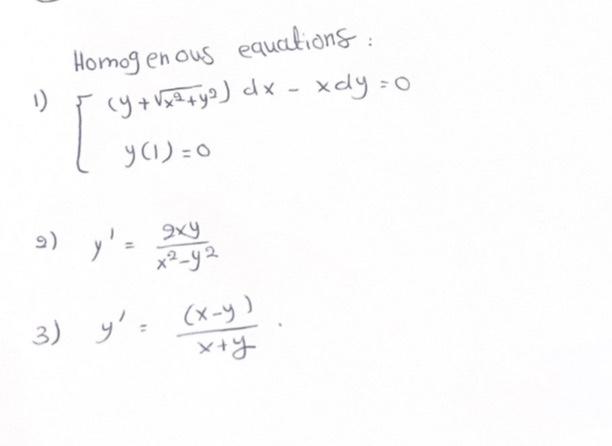 Homogenous equations :
1) { (y + √x²+y²) dx - xdy = 0
y(1) = 0
2) y' = 2xy / x²-y²
3) y' = (x-y) / x+y .